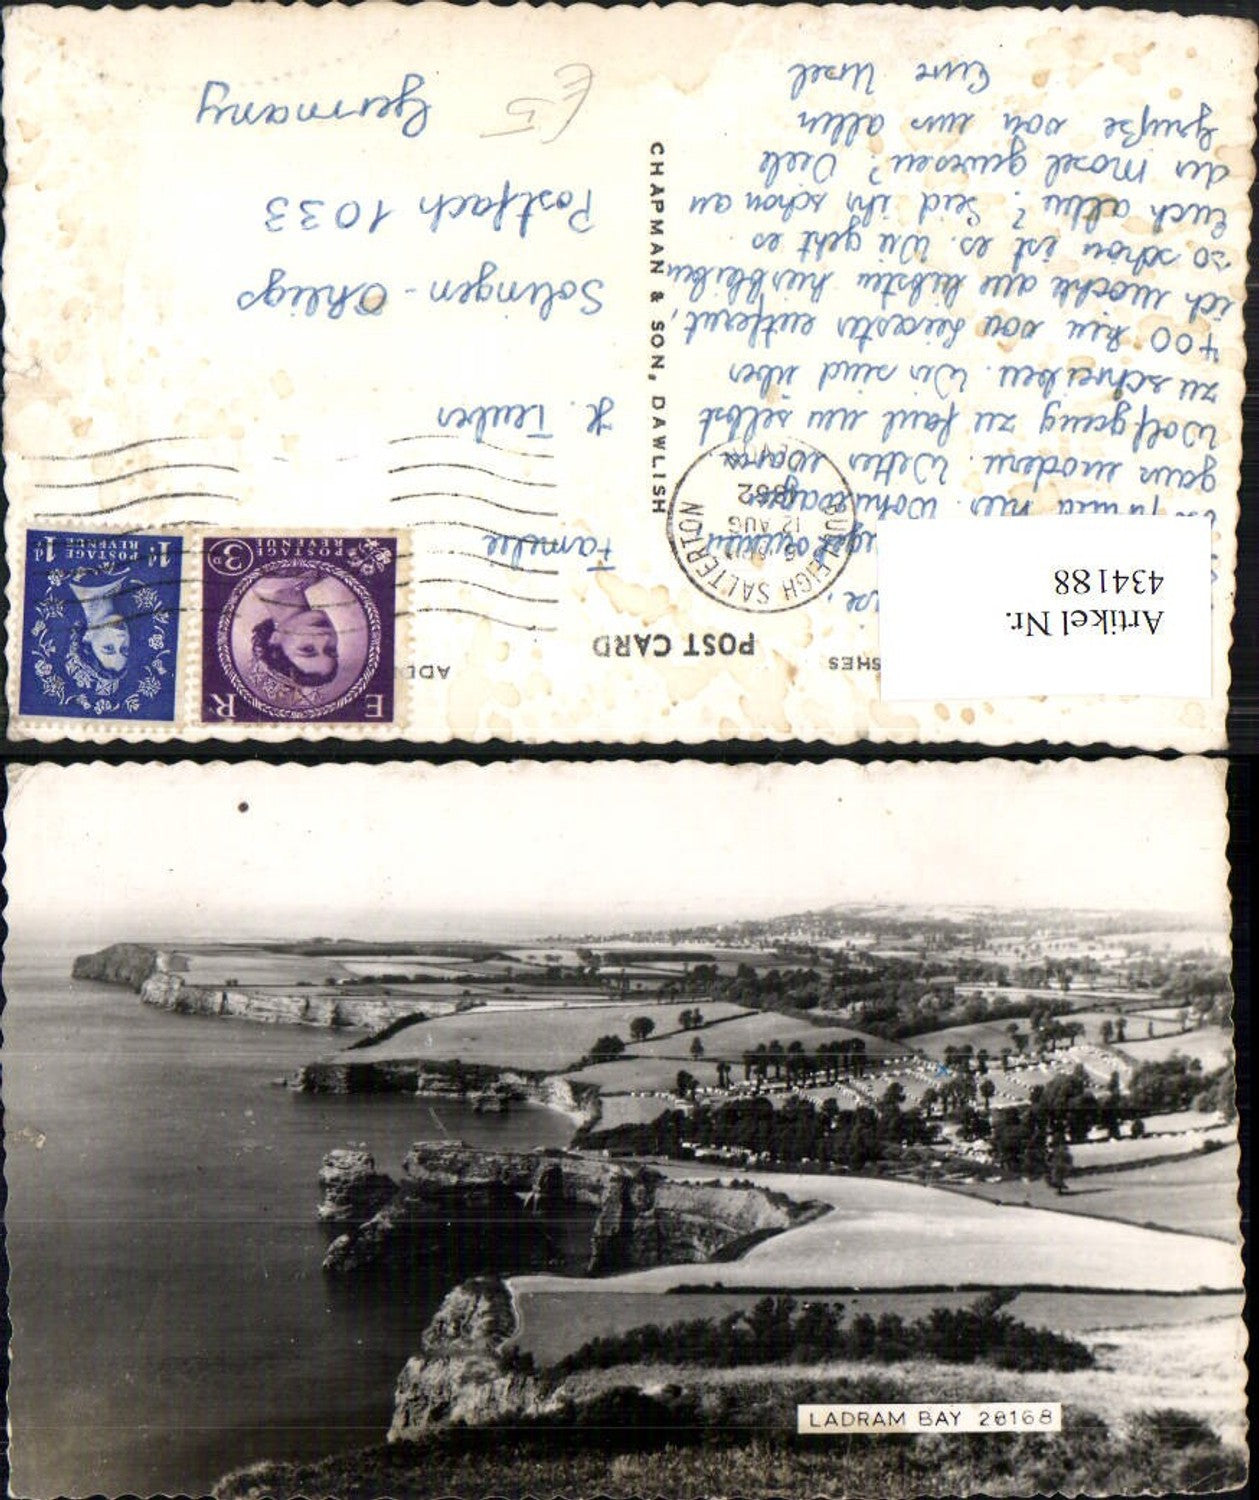 POST CARD
SHES
ADD
Artikel Nr.
434188
hier. Wohnwagen
ganz modern. Wetter warm.
Wolfgang zu faul um selbst
zu schreiben. Wir sind über
400 km von Leicester entfernt,
ich möchte am liebsten hierbleiben
so schön ist es. Wie geht es
Euch allen? Seid ihr schon an
der Mosel gewesen? Viele
Grüße von uns allen
Eure Ursel
CHAPMAN & SON, DAWLISH
BUDLEIGH SALTERTON
12 AUG
1962
DEVON
E R
3D
POSTAGE
REVENUE
1d POSTAGE 1d
REVENUE
Familie
H. Teuber
Solingen-Ohligs
Postfach 1033
Germany
£5
LADRAM BAY 20168